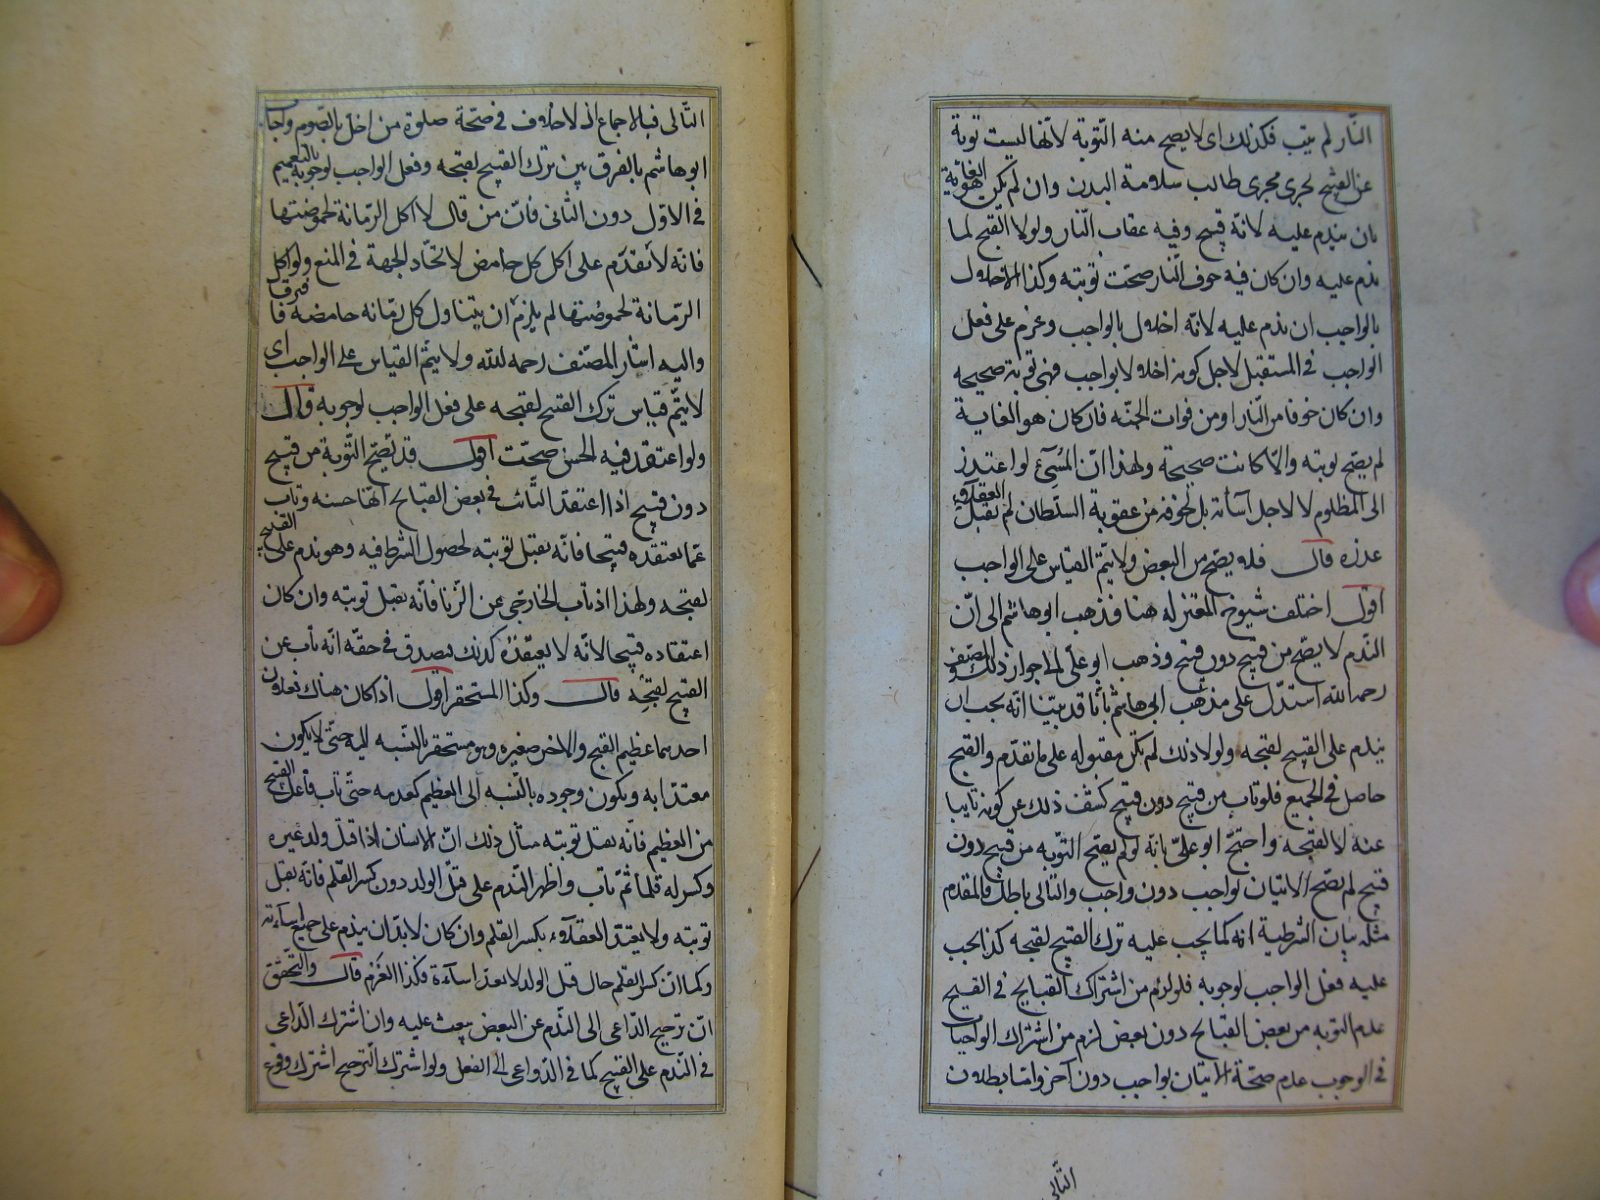 النّار لم يتب فكذلك اى لا يصح منه التّوبة لانّها ليست توبة
عن القبيح لجرى مجرى طالب سلامة البدن وان لم يكن الغاية هو
بان يندم عليه لانّه قبيح وفيه عقاب النّار ولولا القبح لما
ندم عليه وان كان فيه خوف النّار صحّت توبته وكذا الاخلال
بالواجب ان ندم عليه لانّه اخلال بالواجب وعزم على فعل
الواجب فى المستقبل لاجل كونه اخلالا بواجب فهى توبة صحيحه
وان كان خوفا من النّار او من فوات الجنّه فان كان هو الغاية
لم يصح توبته والّا كانت صحيحة ولهذا انّ المسىء لو اعتذر
الى المظلوم لا لاجل اسائته بل لخوفه من عقوبة السّلطان لم يقبل العقلاء
عذره قال فلا يصح من البعض ولا يتمّ القياس على الواجب
اقول اختلف شيوخ المعتزله هنا فذهب ابو هاشم الى انّ
النّدم لا يصّح من قبيح دون قبيح وذهب ابو علّى الى جواز ذلك والمصنف
رحمه الله استدّل على مذهب ابى هاشم بانّا قد بيّنا انّه يجب ان
يندم على القبيح لقبحه ولولا ذلك لم يكن مقبوله على ما تقدّم والقبح
حاصل فى الجميع فلو تاب من قبيح دون قبيح كشف ذلك عن كونه تايبا
عنه لا لقبحه واحتجّ ابو علىّ بانّه لو لم يصّح التّوبه من قبيح دون
قبيح لم يصّح الاتيان بواجب دون واجب والتالى باطل فالمقدم
مثله بيان الشرطية انه كما يجب عليه ترك القبيح لقبحه كذا يجب
عليه فعل الواجب لوجوبه فلو لزم من اشتراك القبايح فى القبح
عدم التوبه من بعض القبائح دون بعض لزم من اشتراك الواجبات
فى الوجوب عدم صحّة الاتيان بواجب دون آخر وامّا بطلان
التّالى
التّالى فبالاجماع اذ لا خلاف فى صحّة صلوة من اخلّ بالصّوم واجاب
ابو هاشم بالفرق بين ترك القبيح لقبحه وفعل الواجب لوجوبه بالتعميم
فى الاوّل دون الثانى فانّ من قال لا اكل الرّمانة لحموضتها
فانّه لا يقدّم على اكل كل حامض لاتحّاد الجهة فى المنع ولو اكل
الرّمانة لحموضتها لم يلزم ان يتناول كل رمّانه حامضه فافترقا
واليه اشار المصّنف رحمه الله ولا يتمّ القياس على الواجب اى
لا يتمّ قياس ترك القبيح لقبحه على فعل الواجب لوجوبه قال
ولو اعتقد فيه الحسن صحّت اقول قد تصّح التّوبة من قبيح
دون قبيح اذا اعتقد التّائب فى بعض القبائح انّها حسنه وتاب
عمّا يعتقده قبيحا فانّه يقبل توبته لحصول الشرط فيه وهو ندم على القبيح
لقبحه ولهذا اذ تاب الخارجّى عن الزّنا فانّه يقبل توبته وان كان
اعتقاده قبيحا لانّه لا يعتقده كذلك فيصدق فى حقّه انّه تاب عن
القبيح لقبحه قال وكذا المستحقر اقول اذا كان هناك فعلان
احدهما عظيم القبح والاخر صغيره وهو مستحقر بالنّسبه اليه حتّى لا يكون
معتدّا به ويكون وجوده بالنّسبه الى العظيم كعدمه حتّى تاب فاعل القبيح
من العظيم فانّه يقبل توبته مثال ذلك انّ الانسان اذا قتل ولد غيره
وكسر له قلما ثمّ تاب واظهر النّدم على قتل الولد دون كسر القلم فانّه يقبل
توبته ولا يعتدّ العقلاء بكسر القلم وان كان لا بدّ ان يندم على جميع اساءته
وكما انّ كسر القلم حال قتل الولد لا يعدّ اساءة فكذا العزم قال والتحقيق
انّ ترجيح الدّاعى الى النّدم عن البعض يبعث عليه وان اشترك الدّاعى
فى النّدم على القبيح كما فى الدّواعى الى الفعل ولو اشترك الترجيح اشترك وقوع